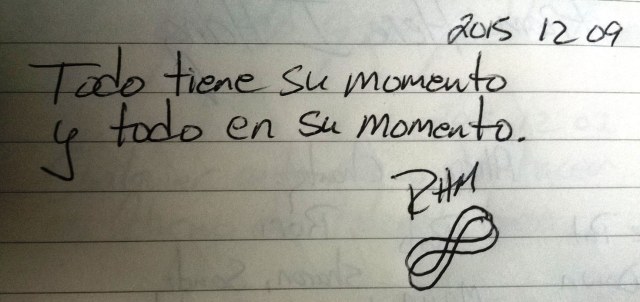 2015 12 09
Todo tiene su momento
y todo en su momento.
RHM